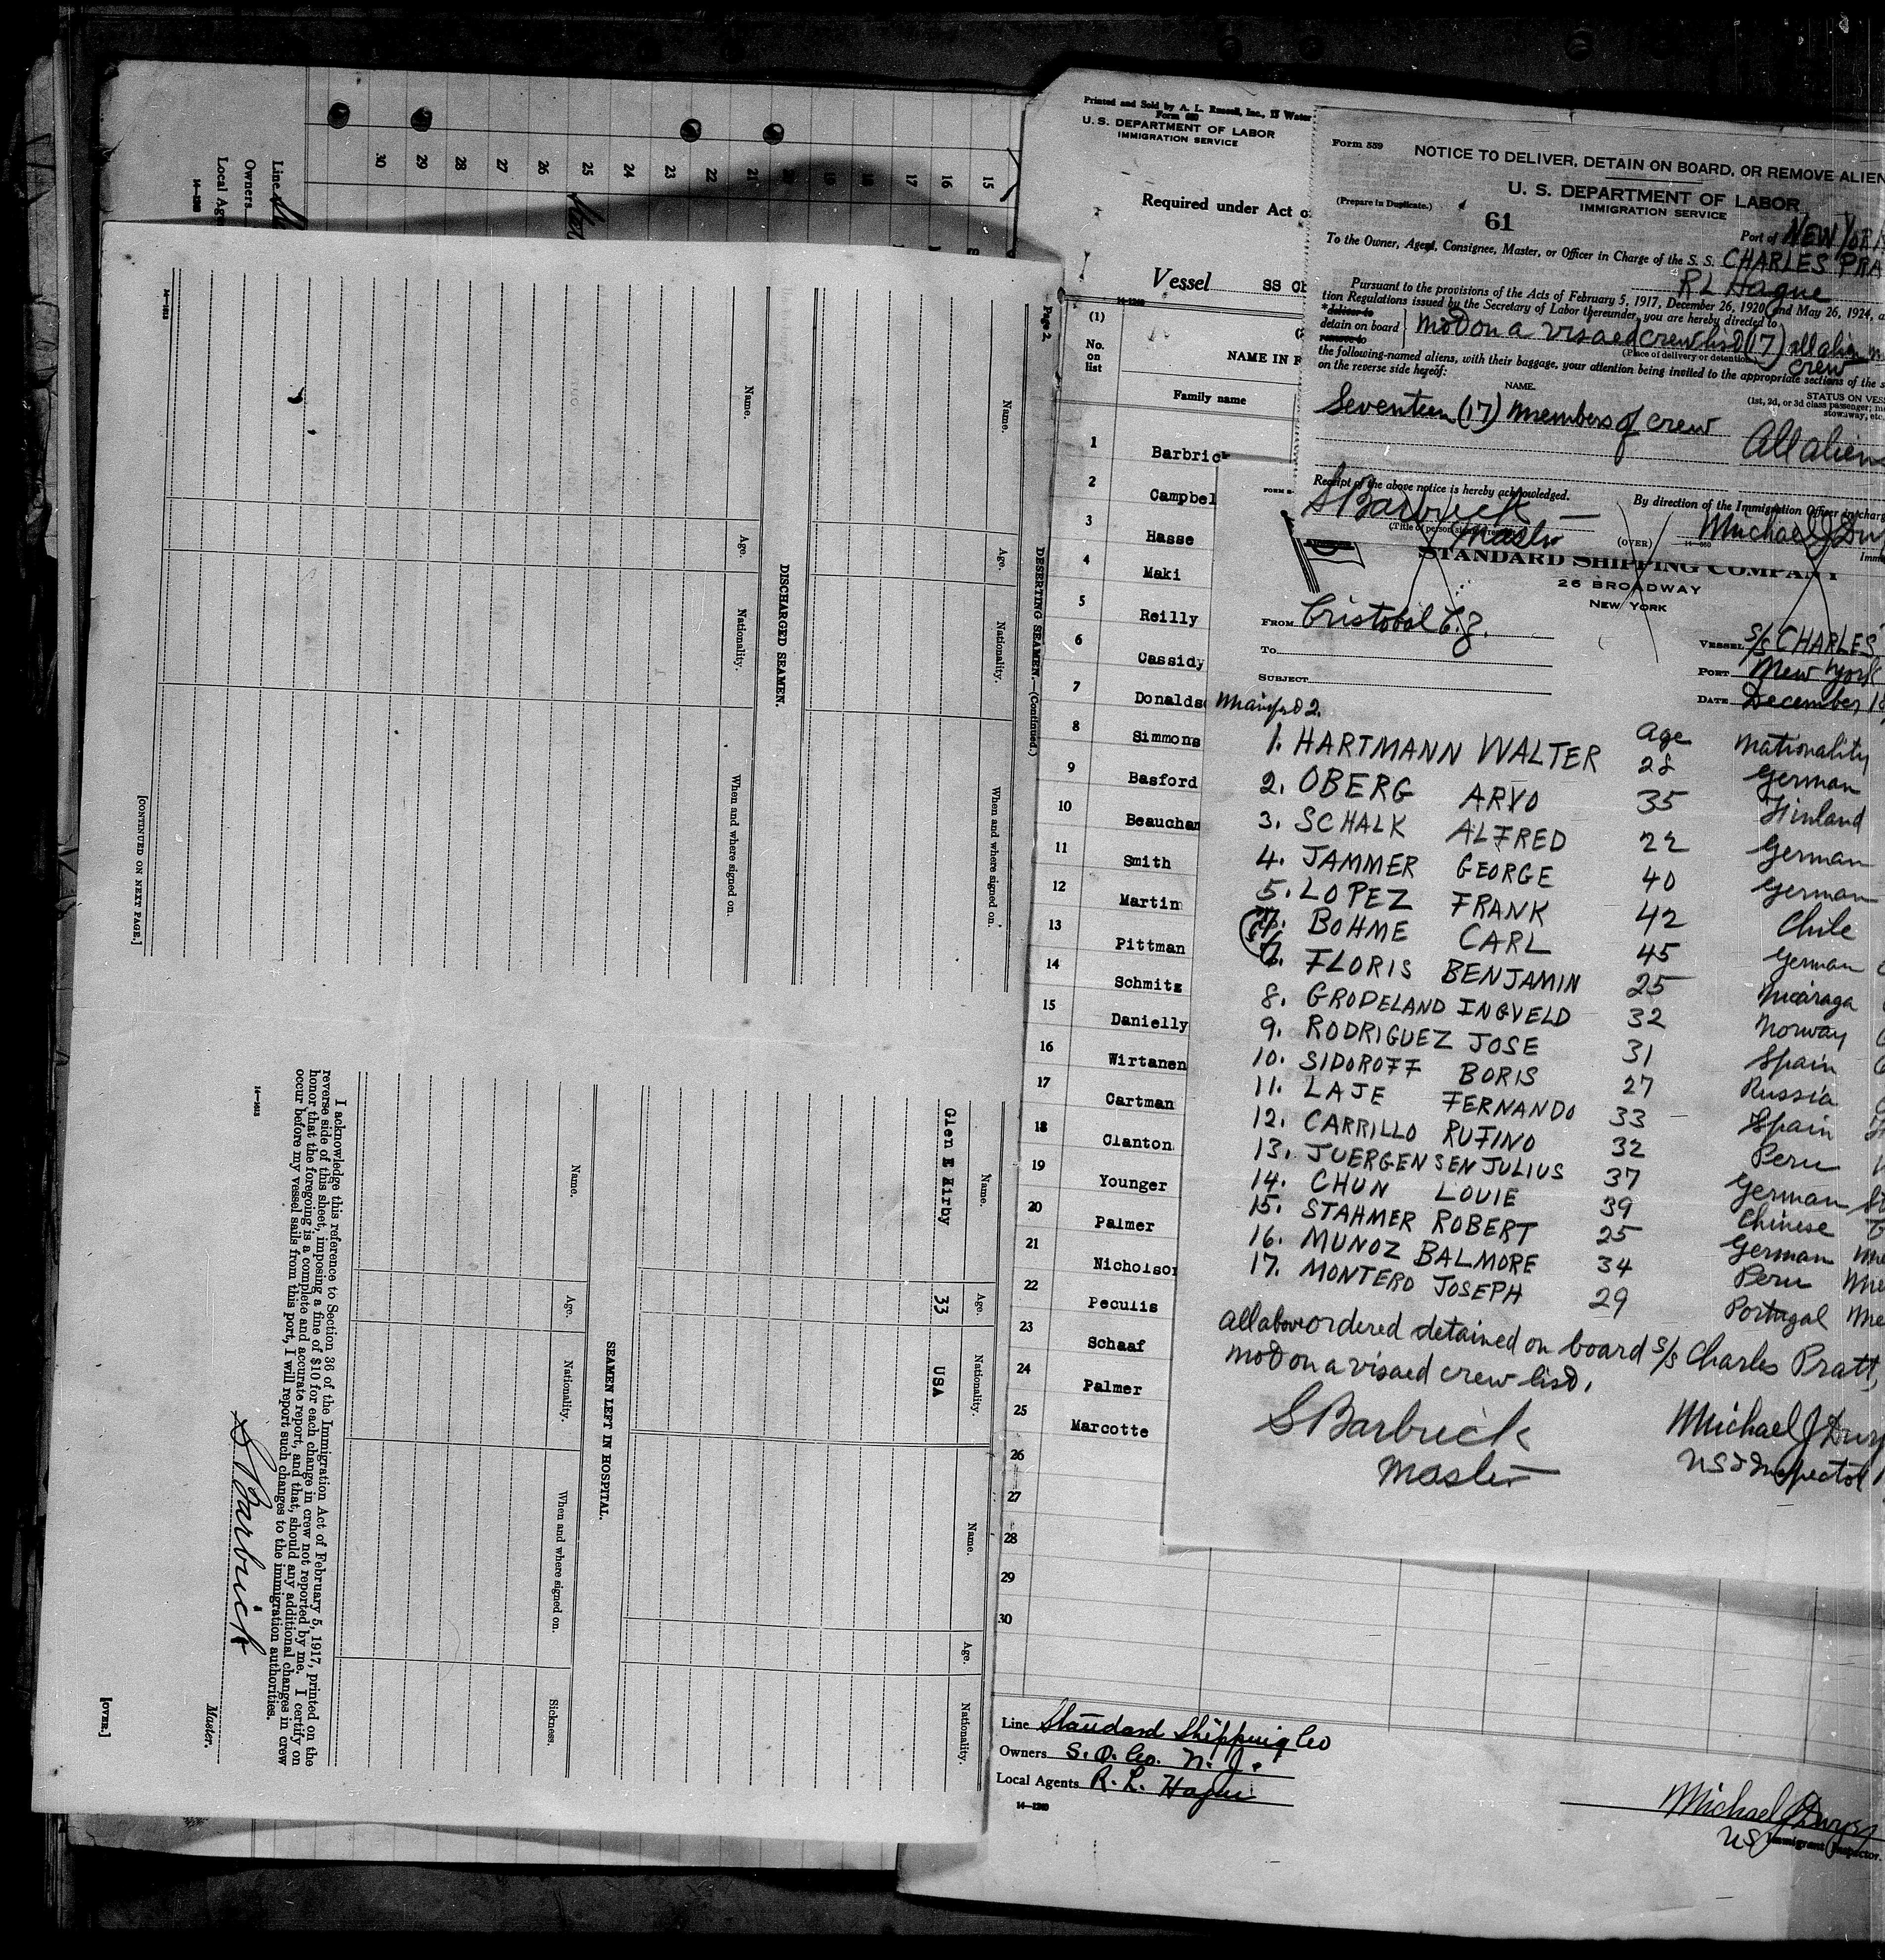 30 29 28 27 26 25 24 23 22 21 20 19 18 17 16 15
Line
Owners
Local Age
14—1240
Page 2
DESERTING SEAMEN.—(Continued.)
Name. Age. Nationality. When and where signed on.
DISCHARGED SEAMEN.
Name. Age. Nationality. When and where signed on.
14—1613
[CONTINUED ON NEXT PAGE.]
Name. Age. Nationality. Name. Age. Nationality.
Glen E Kirby 33 USA
SEAMEN LEFT IN HOSPITAL.
Name. Age. Nationality. When and where signed on. Sickness.
I acknowledge this reference to Section 36 of the Immigration Act of February 5, 1917, printed on the
reverse side of this sheet, imposing a fine of $10 for each change in crew not reported by me. I certify on
honor that the foregoing is a complete and accurate report, and that, should any additional changes in crew
occur before my vessel sails from this port, I will report such changes to the immigration authorities.
S. Barbrick
Master.
14—1613
[OVER.]
Printed and Sold by A. L. Russell, Inc., 15 Water
Form 680
U. S. DEPARTMENT OF LABOR
IMMIGRATION SERVICE
Required under Act o
Vessel SS Ch
14—1240
(1)
No. on list
NAME IN F
Family name
1 Barbrick
2 Campbel
3 Hasse
4 Maki
5 Reilly
6 Cassidy
7 Donalds
8 Simmons
9 Basford
10 Beaucham
11 Smith
12 Martin
13 Pittman
14 Schmitz
15 Danielly
16 Wirtanen
17 Cartman
18 Clanton
19 Younger
20 Palmer
21 Nicholson
22 Peculis
23 Schaaf
24 Palmer
25 Marcotte
26
27
28
29
30
Line Standard Shipping Co
Owners S. O. Co. N. J.
Local Agents R. L. Hague
14—1240
Michael J Dwyer
US Immigrant Inspector.
Form 559
NOTICE TO DELIVER, DETAIN ON BOARD, OR REMOVE ALIEN
U. S. DEPARTMENT OF LABOR
IMMIGRATION SERVICE
(Prepare in Duplicate.)
61
Port of NEW YORK
To the Owner, Agent, Consignee, Master, or Officer in Charge of the S. S. CHARLES PRA
R L Hague
Pursuant to the provisions of the Acts of February 5, 1917, December 26, 1920, and May 26, 1924, a
tion Regulations issued by the Secretary of Labor thereunder, you are hereby directed to
*deliver to
detain on board
remove to
mod on a visaed crew list (17) all alien
crew
(Place of delivery or detention)
the following-named aliens, with their baggage, your attention being invited to the appropriate sections of the s
on the reverse side hereof:
NAME.
STATUS ON VESS
(1st, 2d, or 3d class passenger; me
stowaway, etc.
Seventeen (17) members of crew All alien
Receipt of the above notice is hereby acknowledged.
By direction of the Immigration Officer in charg
S Barbrick
Master
(OVER)
14—960
Michael J Dwy
Imm
STANDARD SHIPPING COMPANY
26 BROADWAY
NEW YORK
FROM Cristobal C.Z.
TO
SUBJECT
VESSEL S/S CHARLES
PORT New York
DATE December 18
Age Nationality
1. HARTMANN WALTER 28 German
2. OBERG ARVO 35 Finland
3. SCHALK ALFRED 22 German
4. JAMMER GEORGE 40 German
5. LOPEZ FRANK 42 Chile
BOHME CARL 45 German
FLORIS BENJAMIN 25 Nicaraga
8. GRODELAND INGVELD 32 Norway
9. RODRIGUEZ JOSE 31 Spain
10. SIDOROFF BORIS 27 Russia
11. LAJE FERNANDO 33 Spain
12. CARRILLO RUFINO 32 Peru
13. JUERGENSEN JULIUS 37 German
14. CHUN LOUIE 39 Chinese
15. STAHMER ROBERT 25 German
16. MUNOZ BALMORE 34 Peru
17. MONTERO JOSEPH 29 Portugal
all above ordered detained on board S/S Charles Pratt,
mod on a visaed crew list.
S Barbrick
Master
Michael J Dwy
US Inspector